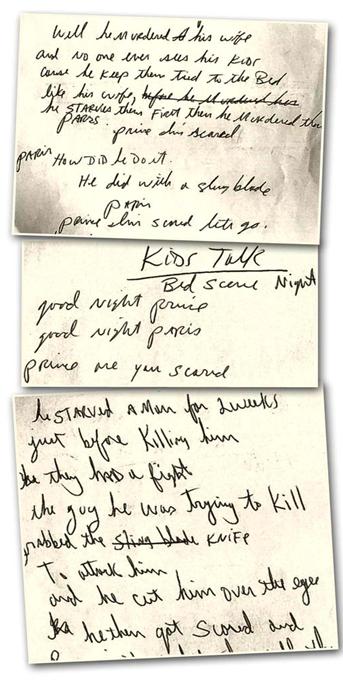 Well he Murdered "his wife
and no one ever sees his Kidr
cause he keep them tied to the Bed
like his wife, before he Murdered his
he STARVES them First then he Murdered the
PARIS.
prince I'm scared
PARIS HOW DID he Do it.
He did with a sling blade
PARIS
prince I'm scared lets go.
Kidr Talk
Bed Scene Night
good night prince
good night PARIS
prince are you scared
he STARVED A Man for 2 weeks
just before Killing him
they had a fight
the guy he was trying to Kill
grabbed the sling blade KNIFE
To attack him
and he cut him over the eyes
he then got scared and